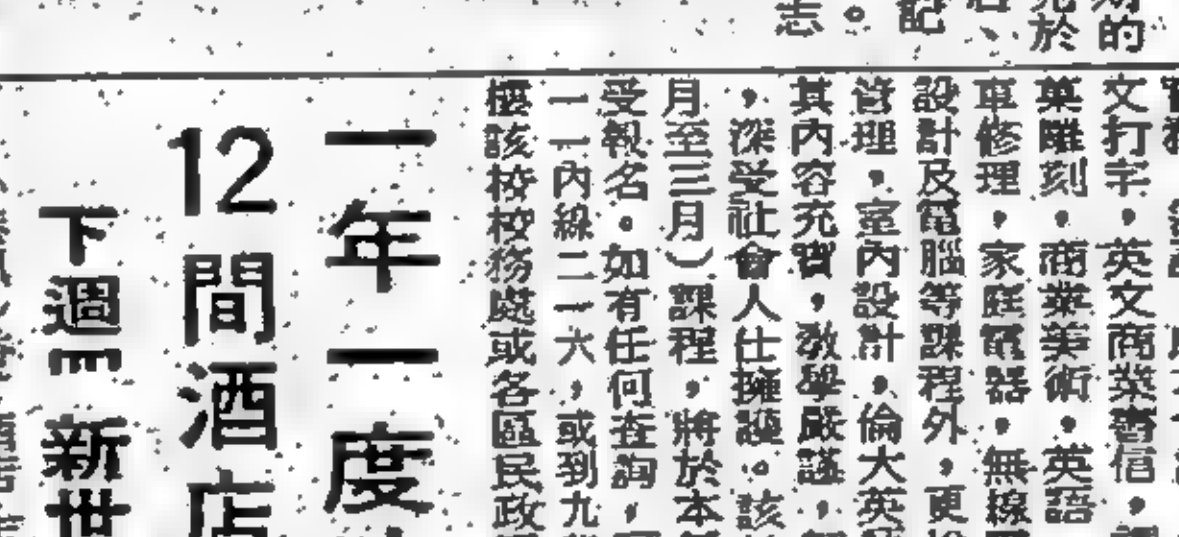 的
於
記
。
志
文打字，英文商業書信，
菓雕刻，商業美術，英語
車修理，家庭電器，無線
設計及電腦等課程外，更
管理，室內設計，倫大英
其內容充實，教學嚴謹，
，深受社會人仕擁護。該
月至三月）課程，將於本
受報名。如有任何查詢，
一一內線二一六，或到九
樓該校校務處或各區民政
一年一度
12間酒店
下週 新世